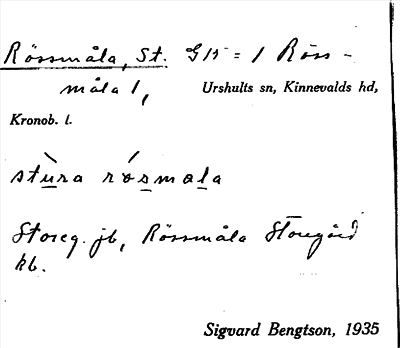 Rössmåla, St. G15 = 1 Röss-
måla 1, Urshults sn, Kinnevalds hd,
Kronob. l.
stùra rósmala
Storeg. jb, Rössmåla Storegård
kb.
Sigvard Bengtson, 1935